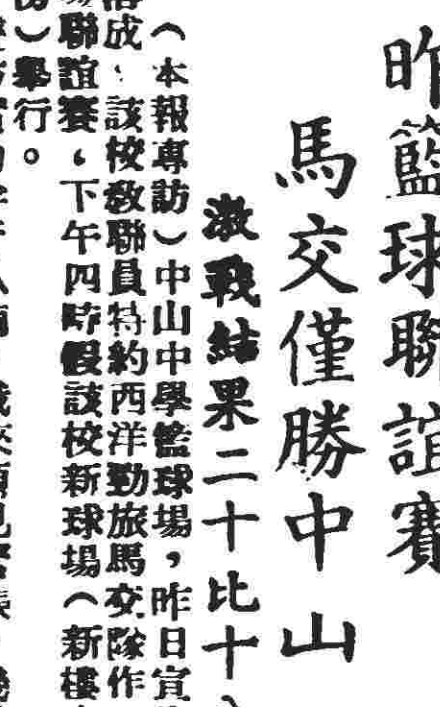 昨籃球聯誼賽
馬交僅勝中山
激戰結果二十比十
（本報專訪）中山中學籃球場，昨日宣
落成、該校教聯員特約西洋勁旅馬交隊作
聯誼賽、下午四時假該校新球場（新樓
）舉行。